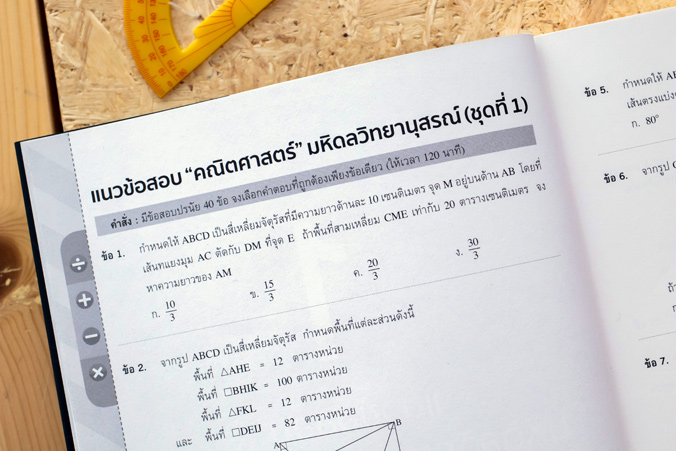 แนวข้อสอบ “คณิตศาสตร์” มหิดลวิทยานุสรณ์ (ชุดที่ 1)
คำสั่ง : มีข้อสอบปรนัย 40 ข้อ จงเลือกคำตอบที่ถูกต้องเพียงข้อเดียว (ให้เวลา 120 นาที)
ข้อ 1. กำหนดให้ ABCD เป็นสี่เหลี่ยมจัตุรัสที่มีความยาวด้านละ 10 เซนติเมตร จุด M อยู่บนด้าน AB โดยที่
เส้นทแยงมุม AC ตัดกับ DM ที่จุด E ถ้าพื้นที่สามเหลี่ยม CME เท่ากับ 20 ตารางเซนติเมตร จง
หาความยาวของ AM
ก. 10/3 ข. 15/3 ค. 20/3 ง. 30/3
ข้อ 2. จากรูป ABCD เป็นสี่เหลี่ยมจัตุรัส กำหนดพื้นที่แต่ละส่วนดังนี้
พื้นที่ △AHE = 12 ตารางหน่วย
พื้นที่ □BHIK = 100 ตารางหน่วย
พื้นที่ △FKL = 12 ตารางหน่วย
และ พื้นที่ □DEIJ = 82 ตารางหน่วย
A B
ข้อ 5. กำหนดให้
เส้นตรงแบ่ง
ก. 80°
ข้อ 6. จากรูป
ข้อ 7.